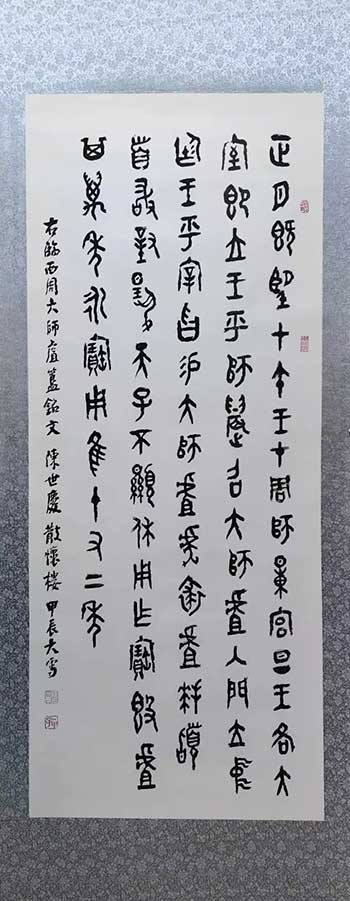 正月既望甲午王才周師量宮旦王各大
室即立王乎師晨召大師虘入門立中
廷王乎宰曶易大師虘虎裘虘拜𩒨
首敢對揚天子不顯休用乍寶簋虘
其萬年永寶用隹十又二年
右臨西周大師虘簋銘文 陳世慶 散懷樓 甲辰大雪